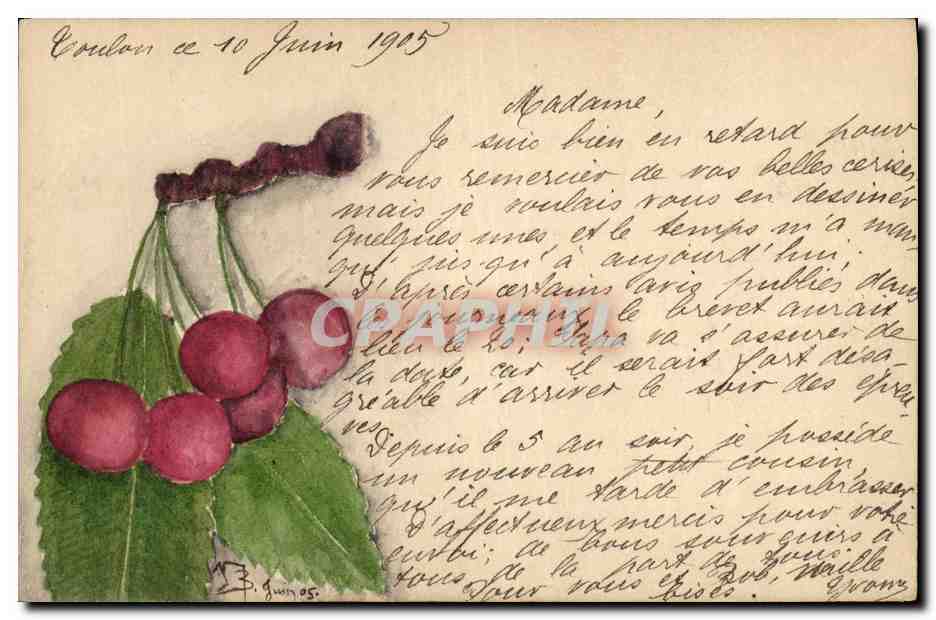 Toulon ce 10 Juin 1905
Madame,
Je suis bien en retard pour
vous remercier de vos belles cerises
mais je voulais vous en dessiner
quelques unes, et le temps m'a man
qué jusqu'à aujourd'hui.
D'après certains avis publiés dans
les journeaux, le brevet aurait
lieu le 20; va s'assurer de
la date, car il serait fort désa-
gréable d'arriver le soir des épreu-
ves.
Depuis le 5 au soir, je possède
un nouveau petit cousin,
qu'il me tarde d'embrasser
D'affectueux mercis pour votre
envoi; de bons souvenirs à
tous, de la part de tous.
Pour vous et Bob, mille
bises. Yvonne
Juin 05.
CPAPHIL